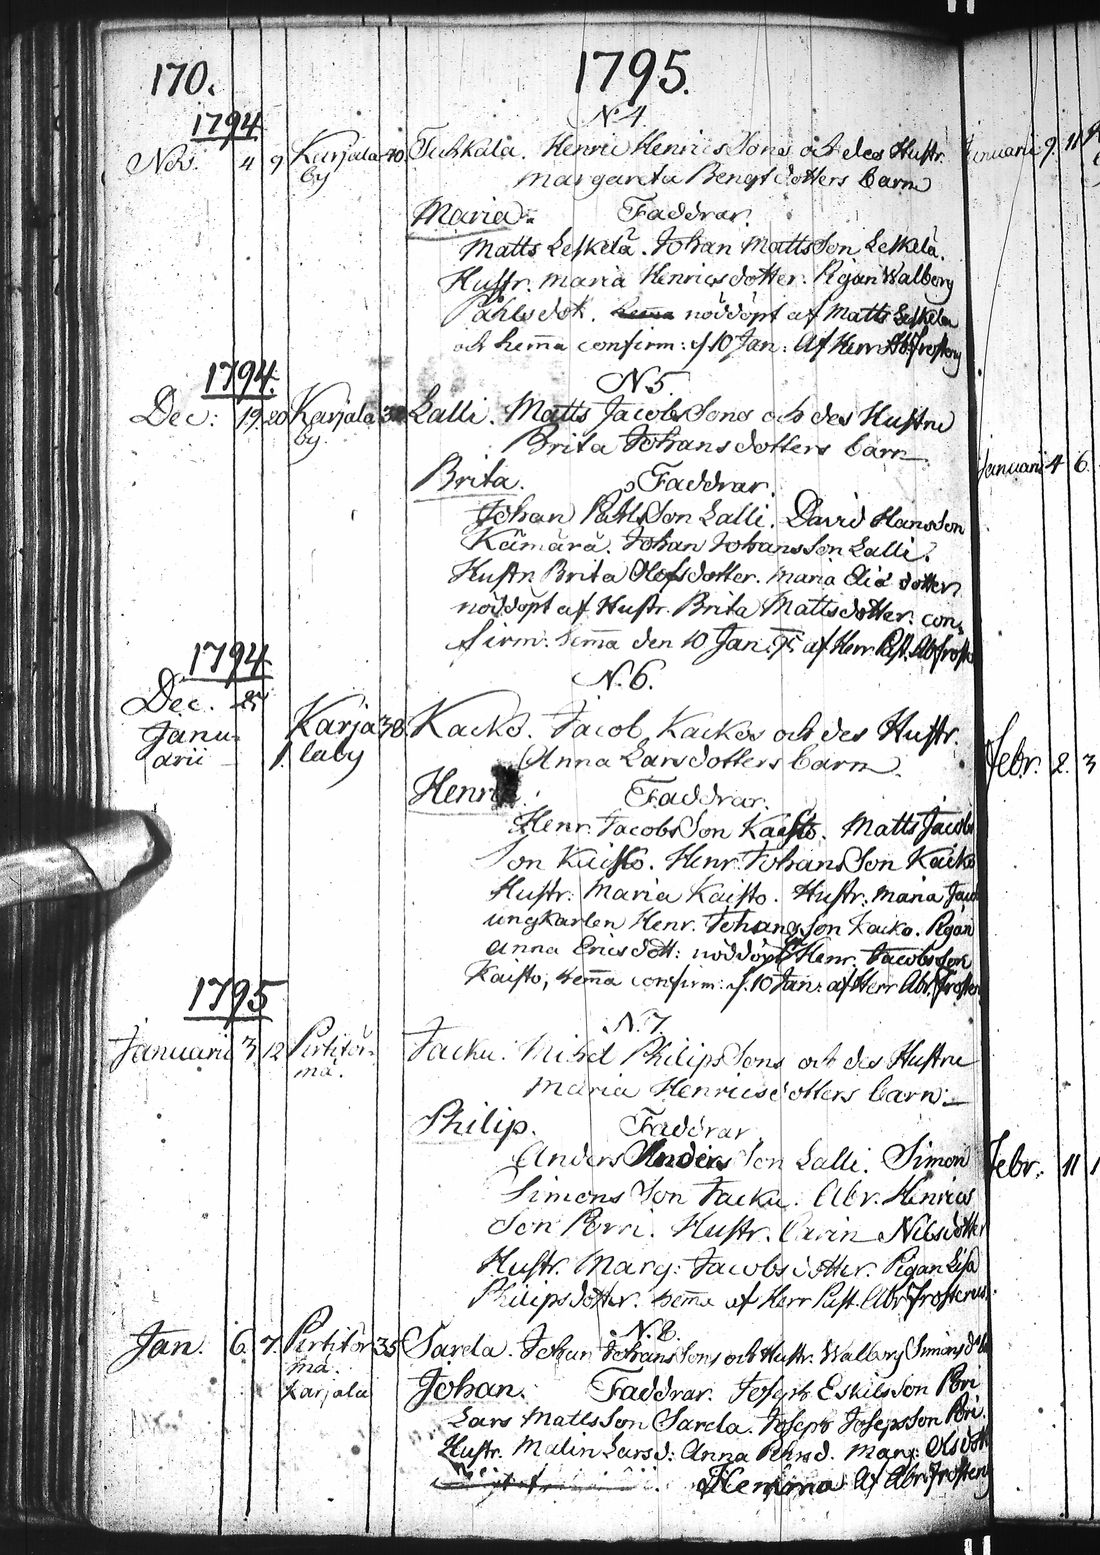 170.
1795.
N. 4.
1794
Nov. 4 9 Karjala by 40. Tuhkala. Henric Henrics Sons och des Hustr.
Margareta Bengtsdotters barn
Maria. Faddrar.
Matts Leskelä. Johan Matts Son Leskelä.
Hustr. Maria Henricsdotter. Pigan Walborg
Påhlsdot. nöddöpt af Matts Leskelä
och hemma confirm: d. 10 Jan: af Herr Ab. Frosterus
1794.
N. 5.
Dec: 19 20 Karjala by 32 Lalli. Matts Jacobs Sons och des Hustru
Brita Johansdotters barn
Brita. Faddrar.
Johan Påhls Son Lalli. David Hansson
Kämärä. Johan Johans Son Lalli.
Hustru Brita Olofsdotter. Maria Eliædotter
nöddöpt af Hustr. Brita Mattsdotter. con-
firm: hemma den 10 Jan. 95. af Herr Past. Ab. Froste
1794
N. 6.
Dec. 27
Januarii 1. Karjalaby 38. Kaiko. Jacob Kaikos och des Hustr.
Anna Larsdotters barn.
Henric. Faddrar.
Henr. Jacobs Son Kaisto. Matts Jacobs
Son Kaisto. Henr. Johans Son Kaiko
Hustr. Maria Kaisto. Hustr. Maria Jaco
ungkarlen Henr. Johans Son Kaiko. Pigan
Anna Ericsdott: nöddöpt af Henr. Jacobs Son
Kaisto, hemma confirm: d. 10 Jan: af Herr Abr. Froster
1795
N. 7.
Januarii 3 12 Pirtitör-
mä.
Jacku. Michel Philips Sons och des Hustru
Maria Henricsdotters barn.
Philip. Faddrar
Anders Anders Son Lalli. Simon
Simons Son Jacku. Abr. Henrics
Son Porri. Hustr. Carin Nilsdotter
Hustr. Marg: Jacobsdotter. Pigan Lisa
Philipsdotter. hemma af Herr Past. Abr. Frosterus.
N. 8.
Jan. 6. 7. Pirtitör
mä.
Karjala 35 Sarela. Johan Johans Sons och Hustr. Walborg Simonsd
Johan. Faddrar. Joseph Eskils Son Pori
Lars Matts Son Sarela. Joseph Josephs Son Pori.
Hustr. Malin Larsd: Anna Påhlsd. Marg: Olsdott
Hemma af Abr. Frosterus
Januarii 9. 11
Januarii 4 6.
Febr. 2. 3
Febr. 11